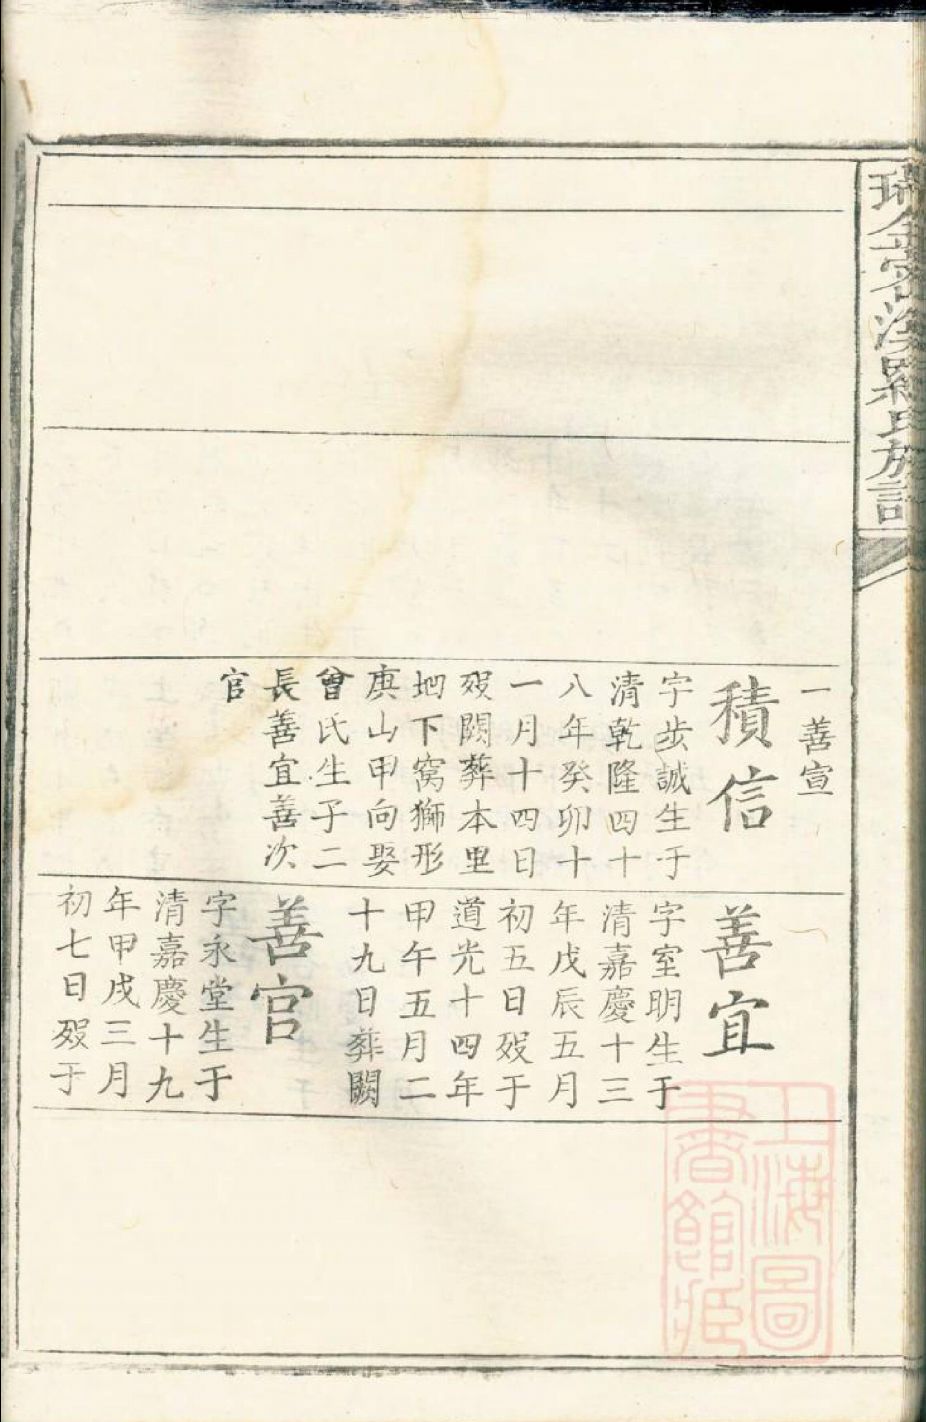 瑞金密溪羅氏族譜
一善宣
積信
字步誠生于
清乾隆四十
八年癸卯十
一月十四日
歿闕葬本里
地下窩獅形
庚山甲向娶
曾氏生子二
長善宜善次
官
善宜
字室明生于
清嘉慶十三
年戊辰五月
初五日歿于
道光十四年
甲午五月二
十九日葬闕
善官
字永堂生于
清嘉慶十九
年甲戌三月
初七日歿于
上海圖
書館藏